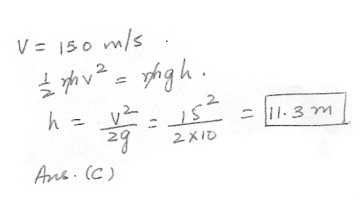 V = 150 m/s .
1/2 mv² = mgh .
h = v²/2g = 15²/2×10 = 11.3 m
Ans. (C)